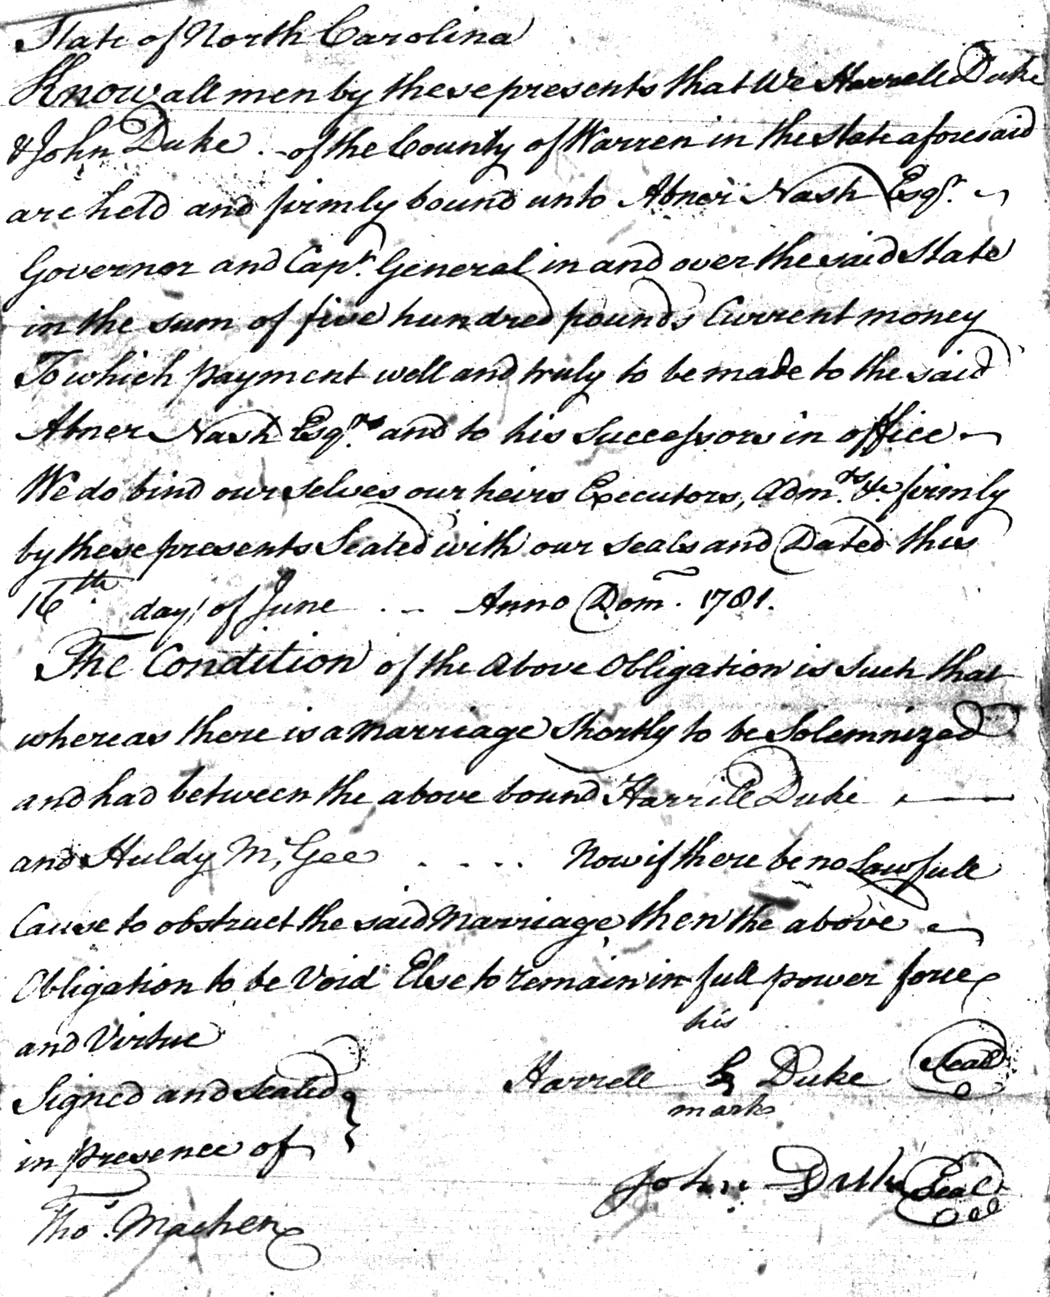 State of North Carolina
Know all men by these presents that We Harrell Duke
& John Duke . - of the County of Warren in the State aforesaid
are held and firmly bound unto Abner Nash Esqr.
Governor and Capt. General in and over the said State
in the sum of five hundred pounds Current money
To which payment well and truly to be made to the said
Abner Nash Esqr. and to his Successors in office
We do bind ourselves our heirs Executors, Admrs. &c firmly
by these presents Sealed with our seals and Dated this
16th. day of June . . - Anno Dom. 1781.
The Condition of the Above Obligation is Such that
whereas there is a Marriage Shortly to be Solemnized
and had between the above bound Harrell Duke
and Huldy McGee . . . . Now if there be no Lawfull
Cause to obstruct the said Marriage then the above
Obligation to be Void Else to remain in full power force
and Virtue
his
Signed and sealed } Harrell Duke Seal
mark
in presence of
John Duke Seal
Thos. Machen